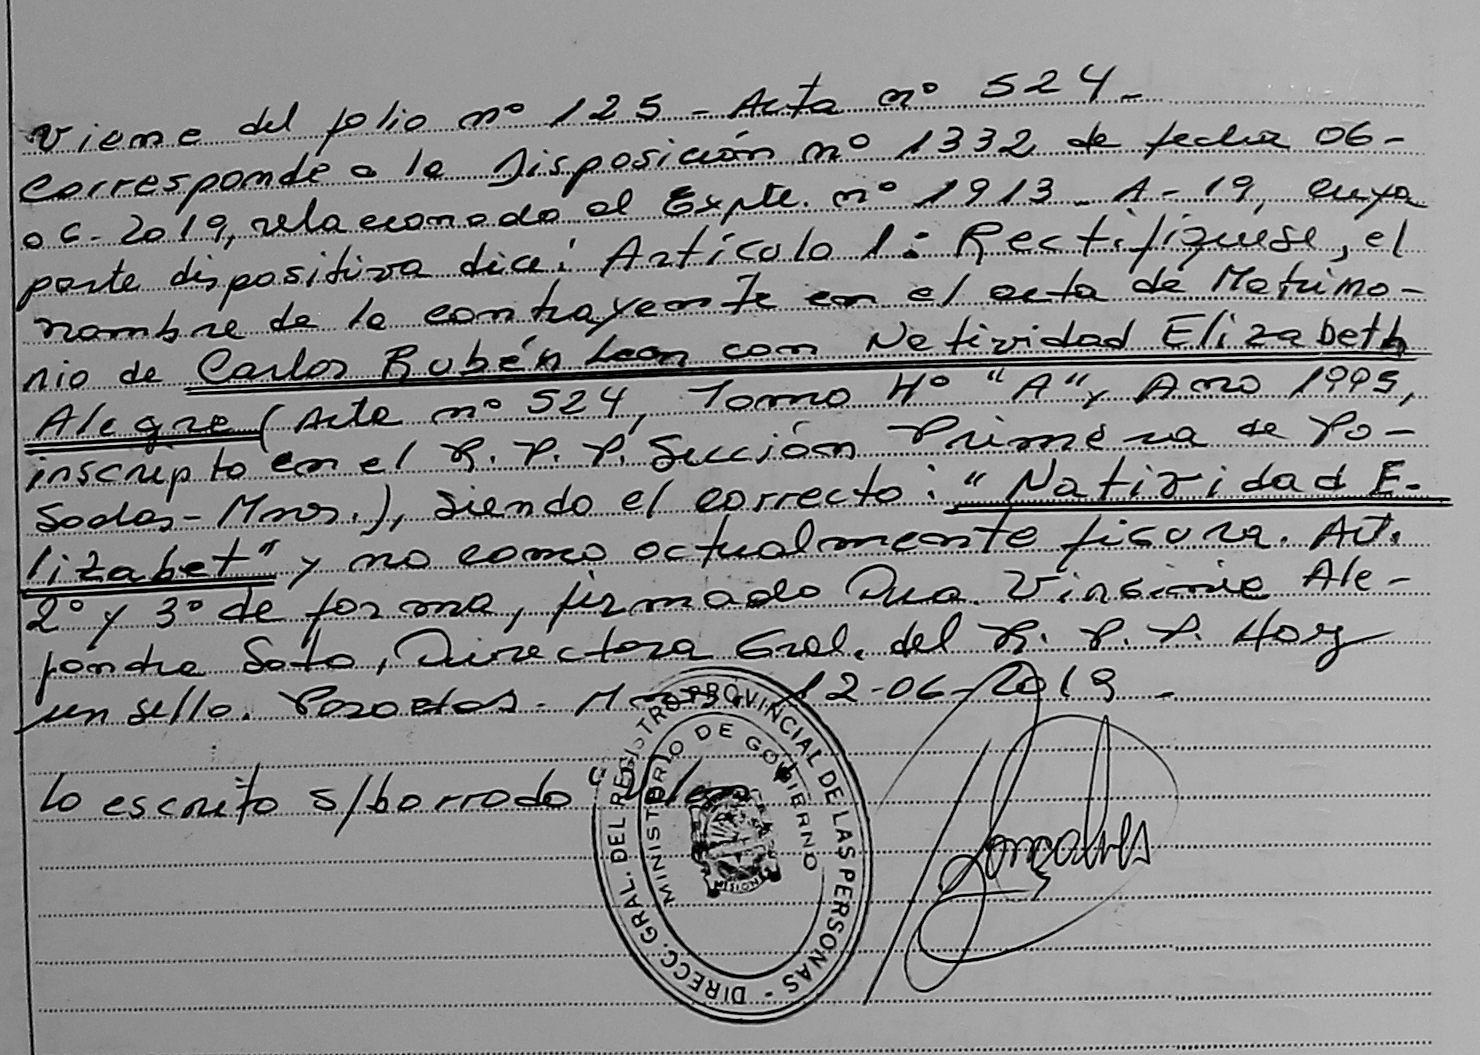 Viene del folio nº 125 - Acta nº 524.-
Corresponde a la Disposición nº 1332 de fecha 06-
06-2019, relacionado al Expte. nº 1913-A-19, cuya
parte dispositiva dice: Artículo 1: Rectifíquese, el
nombre de la contrayente en el acta de Matrimo-
nio de Carlos Rubén Leon con Natividad Elizabeth
Alegre (Acta nº 524, Tomo 4º "A", Año 1995,
inscripto en el R.P.P. Sección Primera de Po-
sadas-Mnes.), siendo el correcto: "Natividad E-
lizabet" y no como actualmente figura. Art.
2º y 3º de forma, firmado Dra. Virginia Ale-
jandra Soto, Directora Gral. del R.P.P. Hay
un sello. Posadas. 12-06-2019.-
Lo escrito s/borrado
DIRECC. GRAL. DEL REGISTRO PROVINCIAL DE LAS PERSONAS -
MINISTERIO DE GOBIERNO
MISIONES